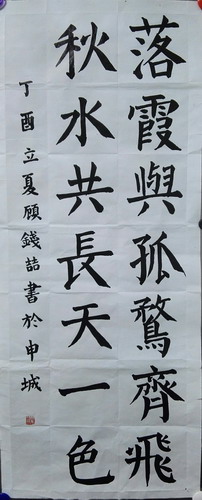 落霞與孤鶩齊飛
秋水共長天一色
丁酉立夏顾錢喆書於申城